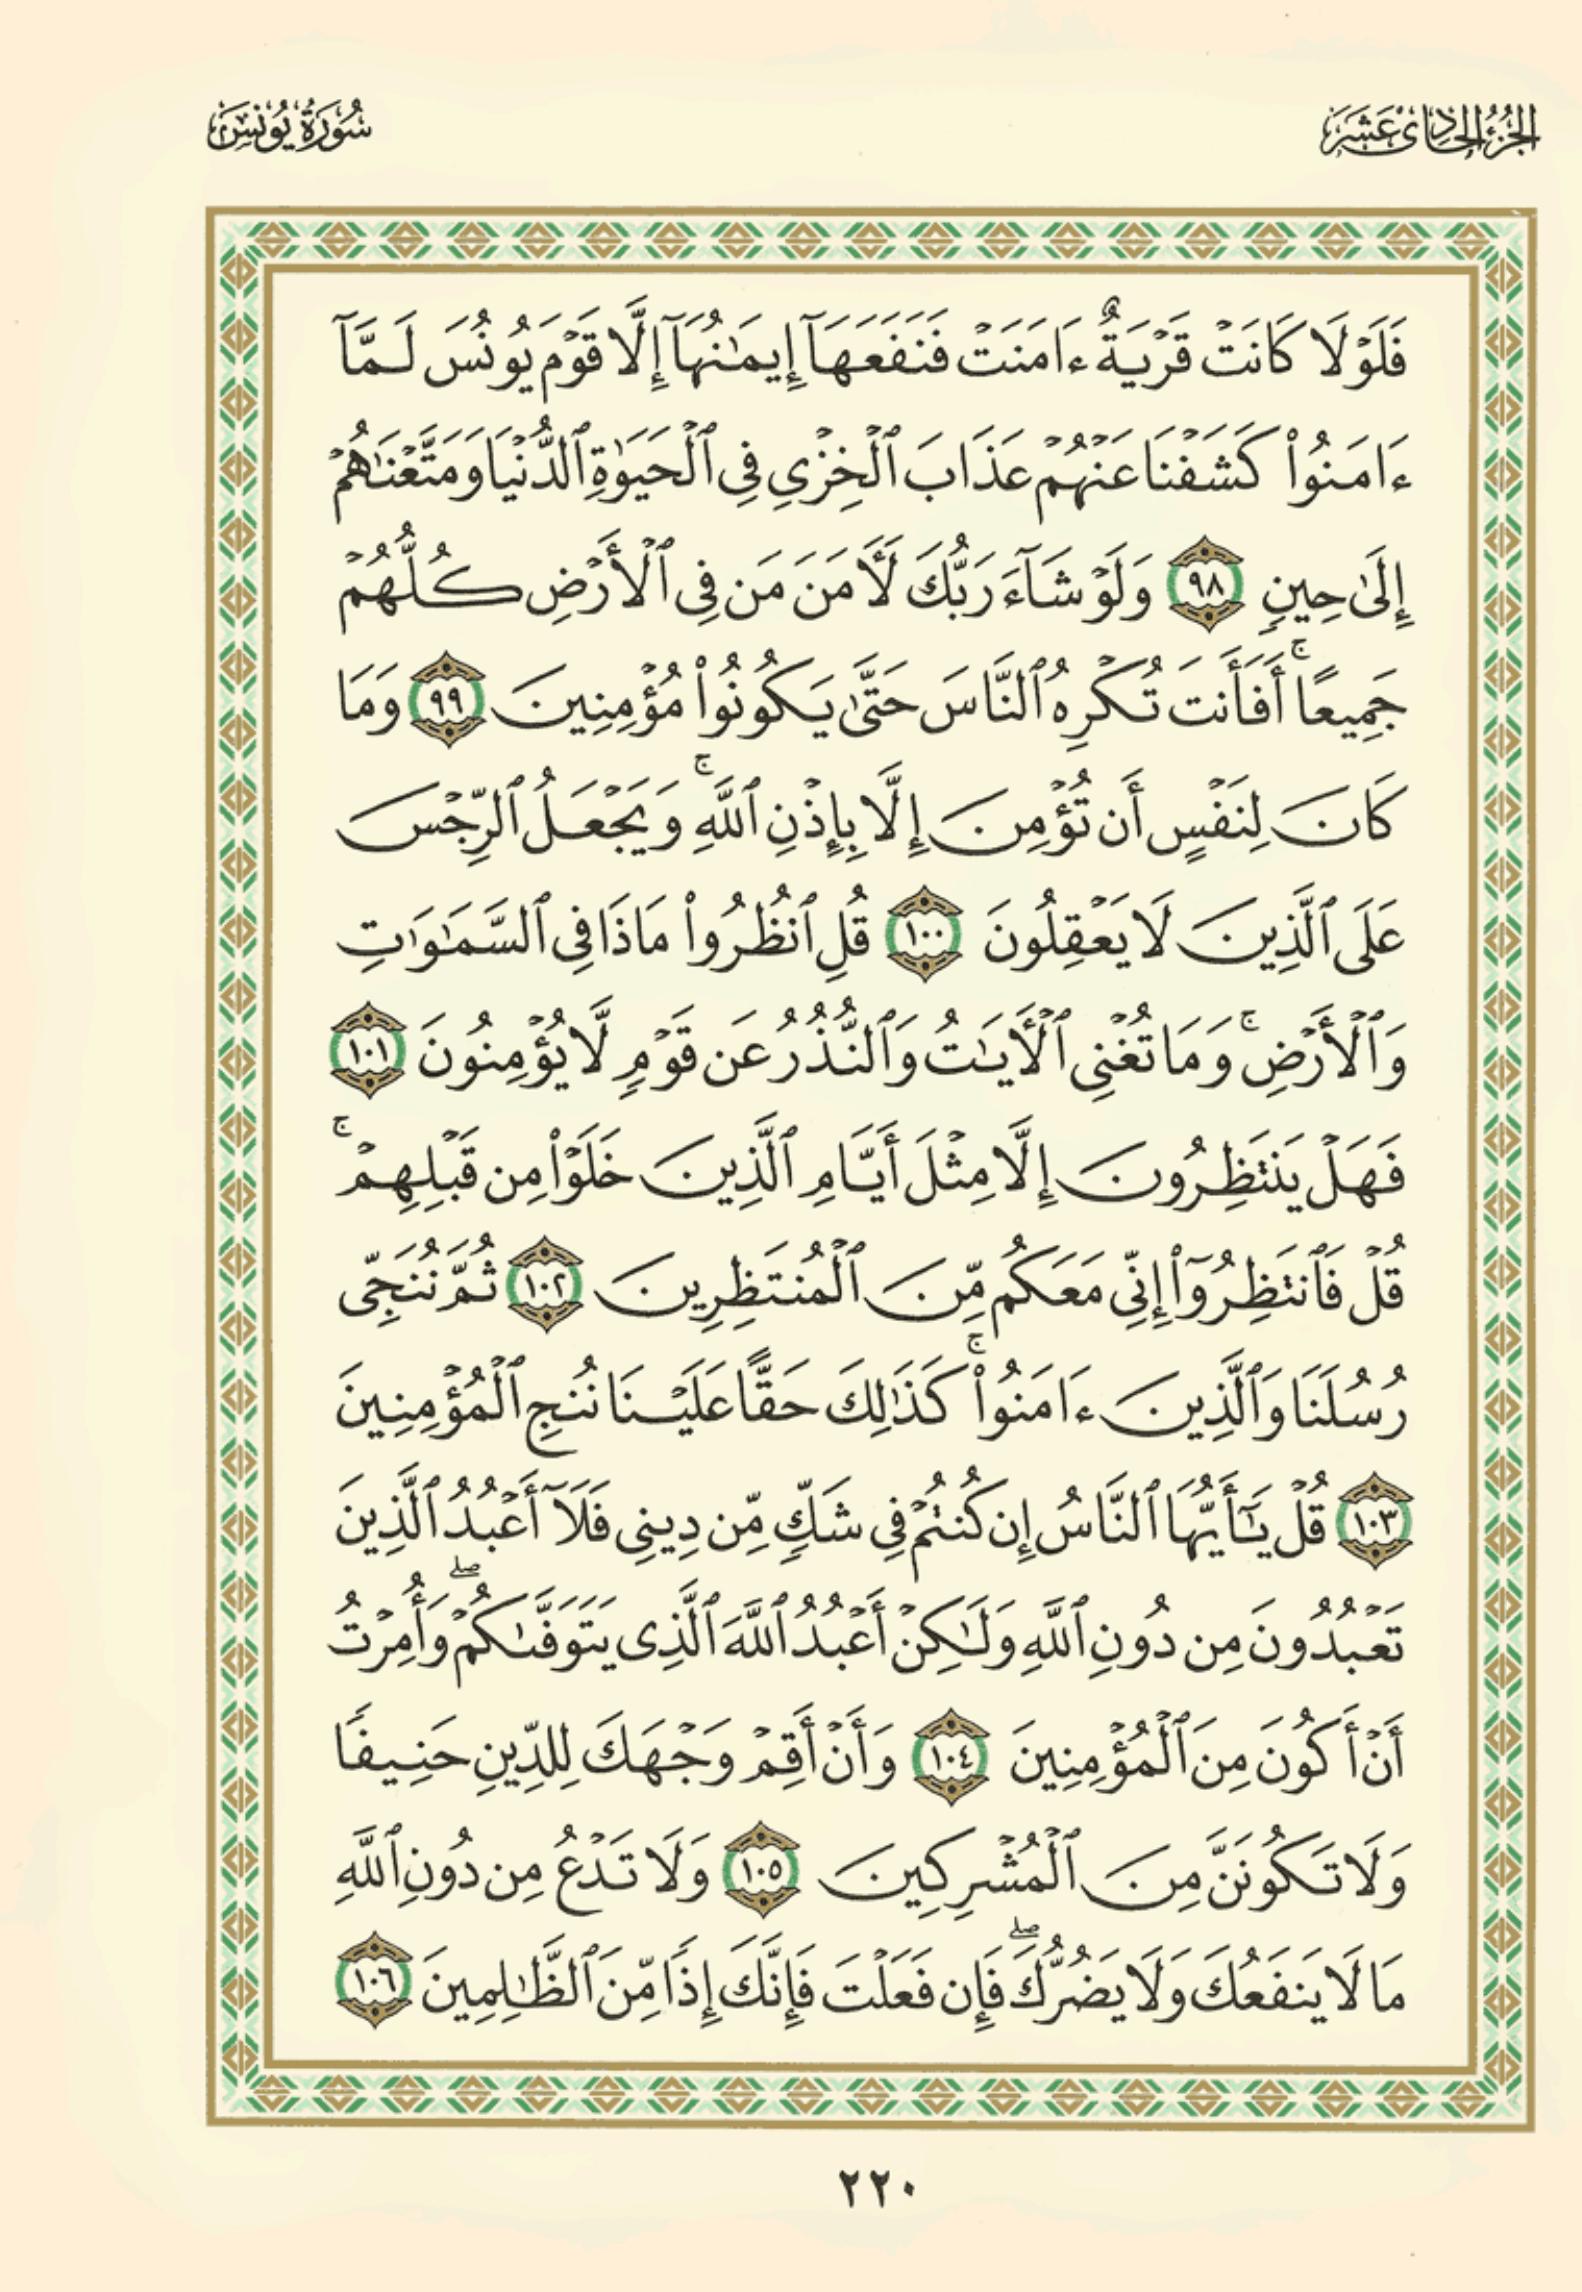 الجزء الحادي عشر
سورة يونس
فَلَوْلَا كَانَتْ قَرْيَةٌ ءَامَنَتْ فَنَفَعَهَآ إِيمَـٰنُهَآ إِلَّا قَوْمَ يُونُسَ لَمَّآ
ءَامَنُوا۟ كَشَفْنَا عَنْهُمْ عَذَابَ ٱلْخِزْىِ فِى ٱلْحَيَوٰةِ ٱلدُّنْيَا وَمَتَّعْنَـٰهُمْ
إِلَىٰ حِينٍ ٩٨ وَلَوْ شَآءَ رَبُّكَ لَـَٔامَنَ مَن فِى ٱلْأَرْضِ كُلُّهُمْ
جَمِيعًا ۚ أَفَأَنتَ تُكْرِهُ ٱلنَّاسَ حَتَّىٰ يَكُونُوا۟ مُؤْمِنِينَ ٩٩ وَمَا
كَانَ لِنَفْسٍ أَن تُؤْمِنَ إِلَّا بِإِذْنِ ٱللَّهِ ۚ وَيَجْعَلُ ٱلرِّجْسَ
عَلَى ٱلَّذِينَ لَا يَعْقِلُونَ ١٠٠ قُلِ ٱنظُرُوا۟ مَاذَا فِى ٱلسَّمَـٰوَٰتِ
وَٱلْأَرْضِ ۚ وَمَا تُغْنِى ٱلْـَٔايَـٰتُ وَٱلنُّذُرُ عَن قَوْمٍ لَّا يُؤْمِنُونَ ١٠١
فَهَلْ يَنتَظِرُونَ إِلَّا مِثْلَ أَيَّامِ ٱلَّذِينَ خَلَوْا۟ مِن قَبْلِهِمْ ۚ
قُلْ فَٱنتَظِرُوٓا۟ إِنِّى مَعَكُم مِّنَ ٱلْمُنتَظِرِينَ ١٠٢ ثُمَّ نُنَجِّى
رُسُلَنَا وَٱلَّذِينَ ءَامَنُوا۟ ۚ كَذَٰلِكَ حَقًّا عَلَيْنَا نُنجِ ٱلْمُؤْمِنِينَ
١٠٣ قُلْ يَـٰٓأَيُّهَا ٱلنَّاسُ إِن كُنتُمْ فِى شَكٍّ مِّن دِينِى فَلَآ أَعْبُدُ ٱلَّذِينَ
تَعْبُدُونَ مِن دُونِ ٱللَّهِ وَلَـٰكِنْ أَعْبُدُ ٱللَّهَ ٱلَّذِى يَتَوَفَّىٰكُمْ ۖ وَأُمِرْتُ
أَنْ أَكُونَ مِنَ ٱلْمُؤْمِنِينَ ١٠٤ وَأَنْ أَقِمْ وَجْهَكَ لِلدِّينِ حَنِيفًا
وَلَا تَكُونَنَّ مِنَ ٱلْمُشْرِكِينَ ١٠٥ وَلَا تَدْعُ مِن دُونِ ٱللَّهِ
مَا لَا يَنفَعُكَ وَلَا يَضُرُّكَ ۖ فَإِن فَعَلْتَ فَإِنَّكَ إِذًا مِّنَ ٱلظَّـٰلِمِينَ ١٠٦
٢٢٠